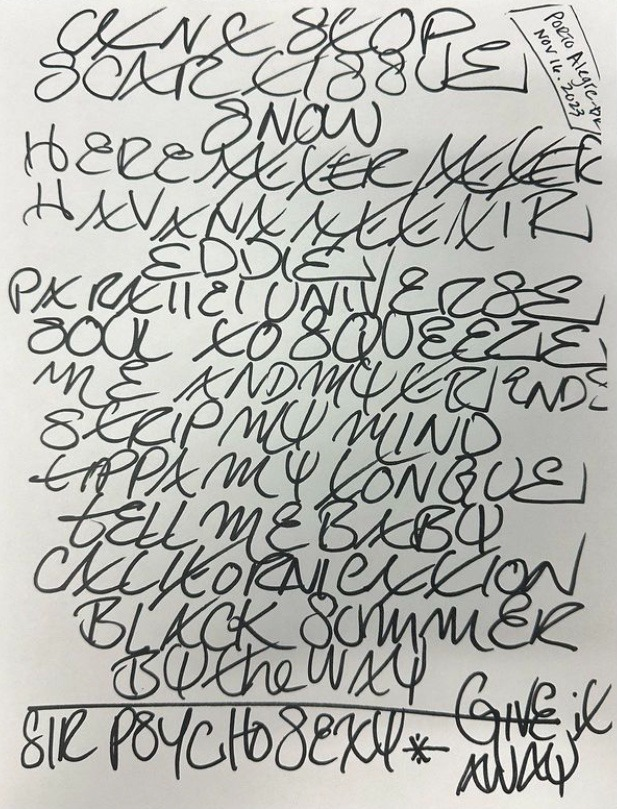 CAN'T STOP
SCAR TISSUE
SNOW
HERE EVER AFTER
HAVANA AFFAIR
EDDIE
PARALLEL UNIVERSE
SOUL TO SQUEEZE
ME AND MY FRIENDS
STRIP MY MIND
TIPPA MY TONGUE
TELL ME BABY
CALIFORNICATION
BLACK SUMMER
BY the WAY
SIR PSYCHO SEXY *
GIVE it
AWAY
PORTO Alegre. BR
NOV 16. 2023